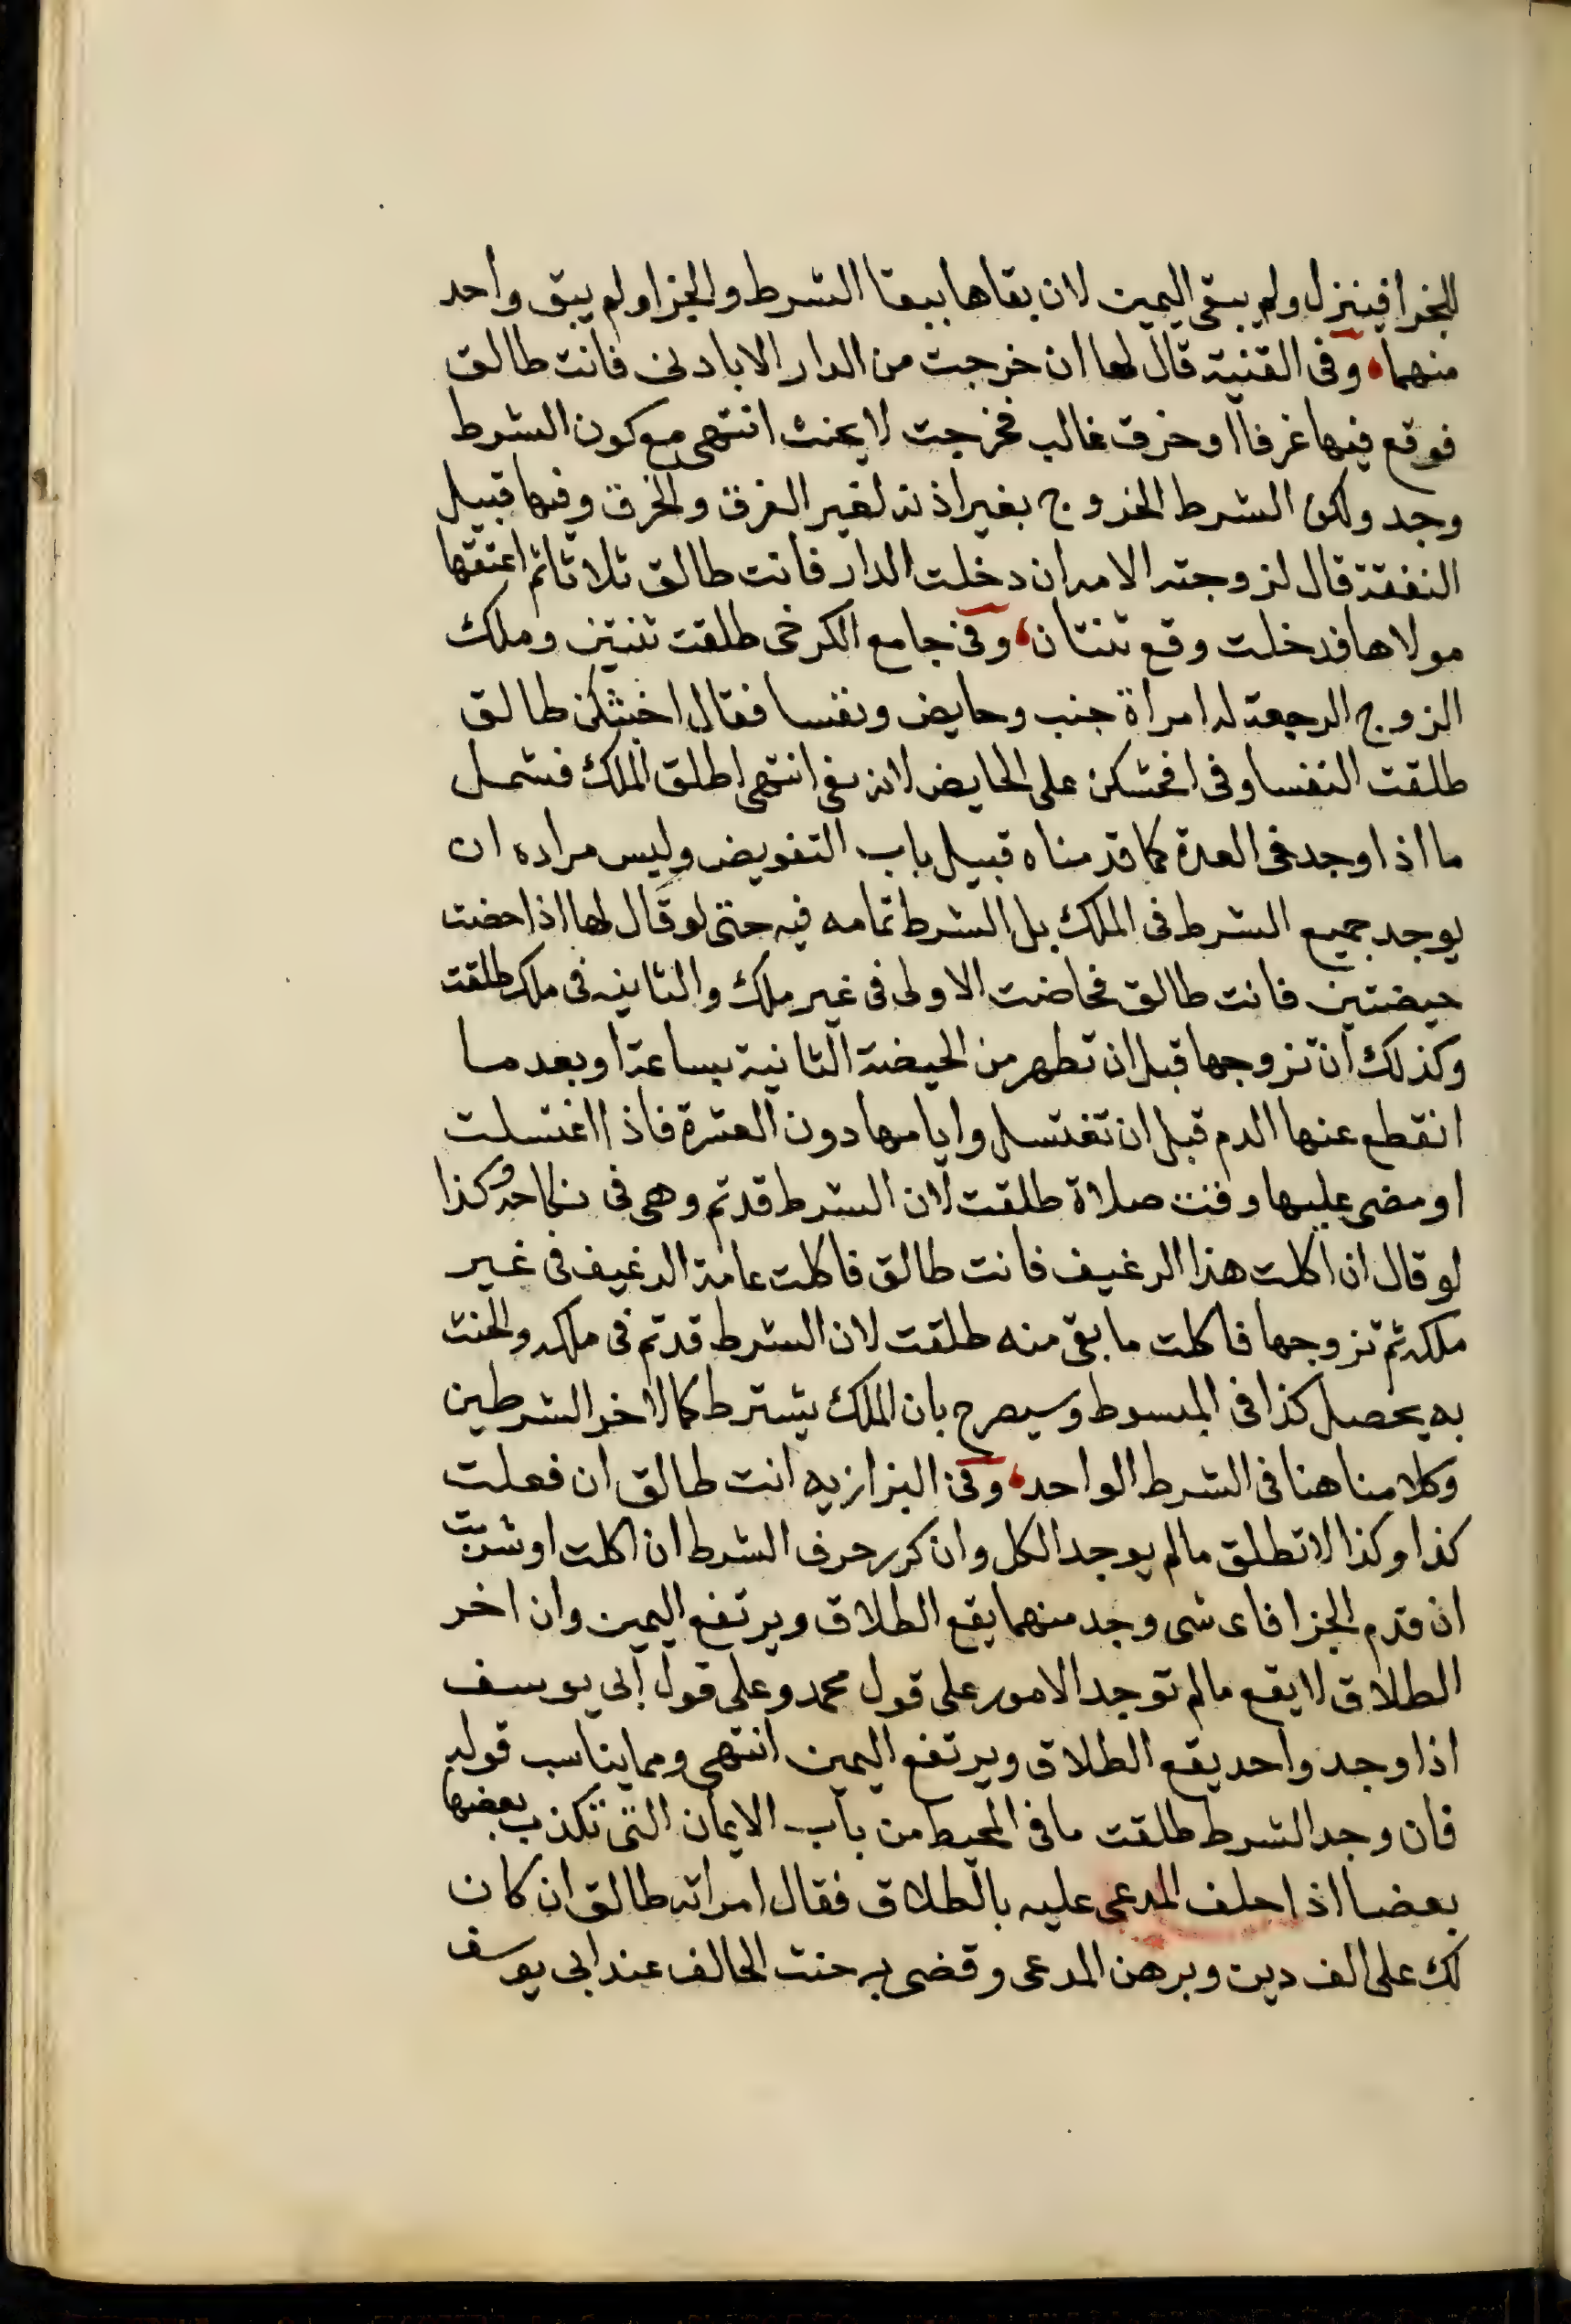 للجزا فينزل ولم يبقى اليمين لان بقاها ببقا الشرط والجزا ولم يبق واحد
منهما، وفى القنية قال لها ان خرجت من الدار الا باذنى فانت طالق
فوقع فيها غرقا او حرق غالب فخرجت لا يحنث انتهى مع كون الشرط
وجد ولكن الشرط الخروج بغير اذنه لغير الغرق والحرق وفيها قبيل
النفقة قال لزوجته الامة ان دخلت الدار فانت طالق ثلاثا ثم اعتقها
مولاها فدخلت وقع ثنتان، وفى جامع الكرخى طلقت ثنتين وملك
الزوج الرجعة له امراة جنب وحايض ونفسا فقال اخبثكن طالق
طلقت النفسا وفى افحشكن على الحايض لانه نص انتهى اطلق الملك فشمل
ما اذا وجد فى العدة كما قدمناه قبيل باب التفويض وليس مراده ان
يوجد جميع الشرط فى الملك بل الشرط تمامه فيه حتى لو قال لها اذا حضت
حيضتين فانت طالق فحاضت الاولى فى غير ملك والثانيه فى ملك طلقت
وكذلك ان تزوجها قبل ان تطهر من الحيضة الثانية بساعة او بعد ما
انقطع عنها الدم قبل ان تغتسل وايامها دون العشرة فاذا اغتسلت
او مضى عليها وقت صلاة طلقت لان الشرط قد تم وهى فى نكاحه وكذا
لو قال ان اكلت هذا الرغيف فانت طالق فاكلت عامة الرغيف فى غير
ملكه ثم تزوجها فاكلت ما بقى منه طلقت لان الشرط قد تم فى ملكه والحنث
به يحصل كذا فى المبسوط وسيصرح بان الملك يشترط كما لاخر الشرطين
وكلامنا هنا فى الشرط الواحد، وفى البزازيه انت طالق ان فعلت
كذا وكذا لا تطلق ما لم يوجد الكل وان كرر حرف الشرط ان اكلت او شربت
ان قدم الجزا فاى شى وجد منهما يقع الطلاق ويرتفع اليمين وان اخر
الطلاق لا يقع ما لم توجد الامور على قول محمد وعلى قول ابى يوسف
اذا وجد واحد يقع الطلاق ويرتفع اليمين انتهى ومما يناسب قوله
فان وجد الشرط طلقت ما فى المحيط من باب الايمان التى تكذب بعضها
بعضا اذا حلف المدعى عليه بالطلاق فقال امراته طالق ان كان
لك على الف دين وبرهن المدعى وقضى به حنث الحالف عند ابى يوسف